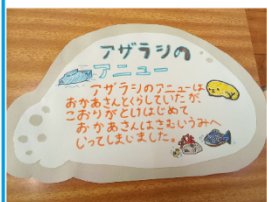 アザラシの
アニュー
アザラシのアニューは
おかあさんとくらしていたが、
こおりがとけはじめて
おかあさんはさむいうみへ
いってしまいました。